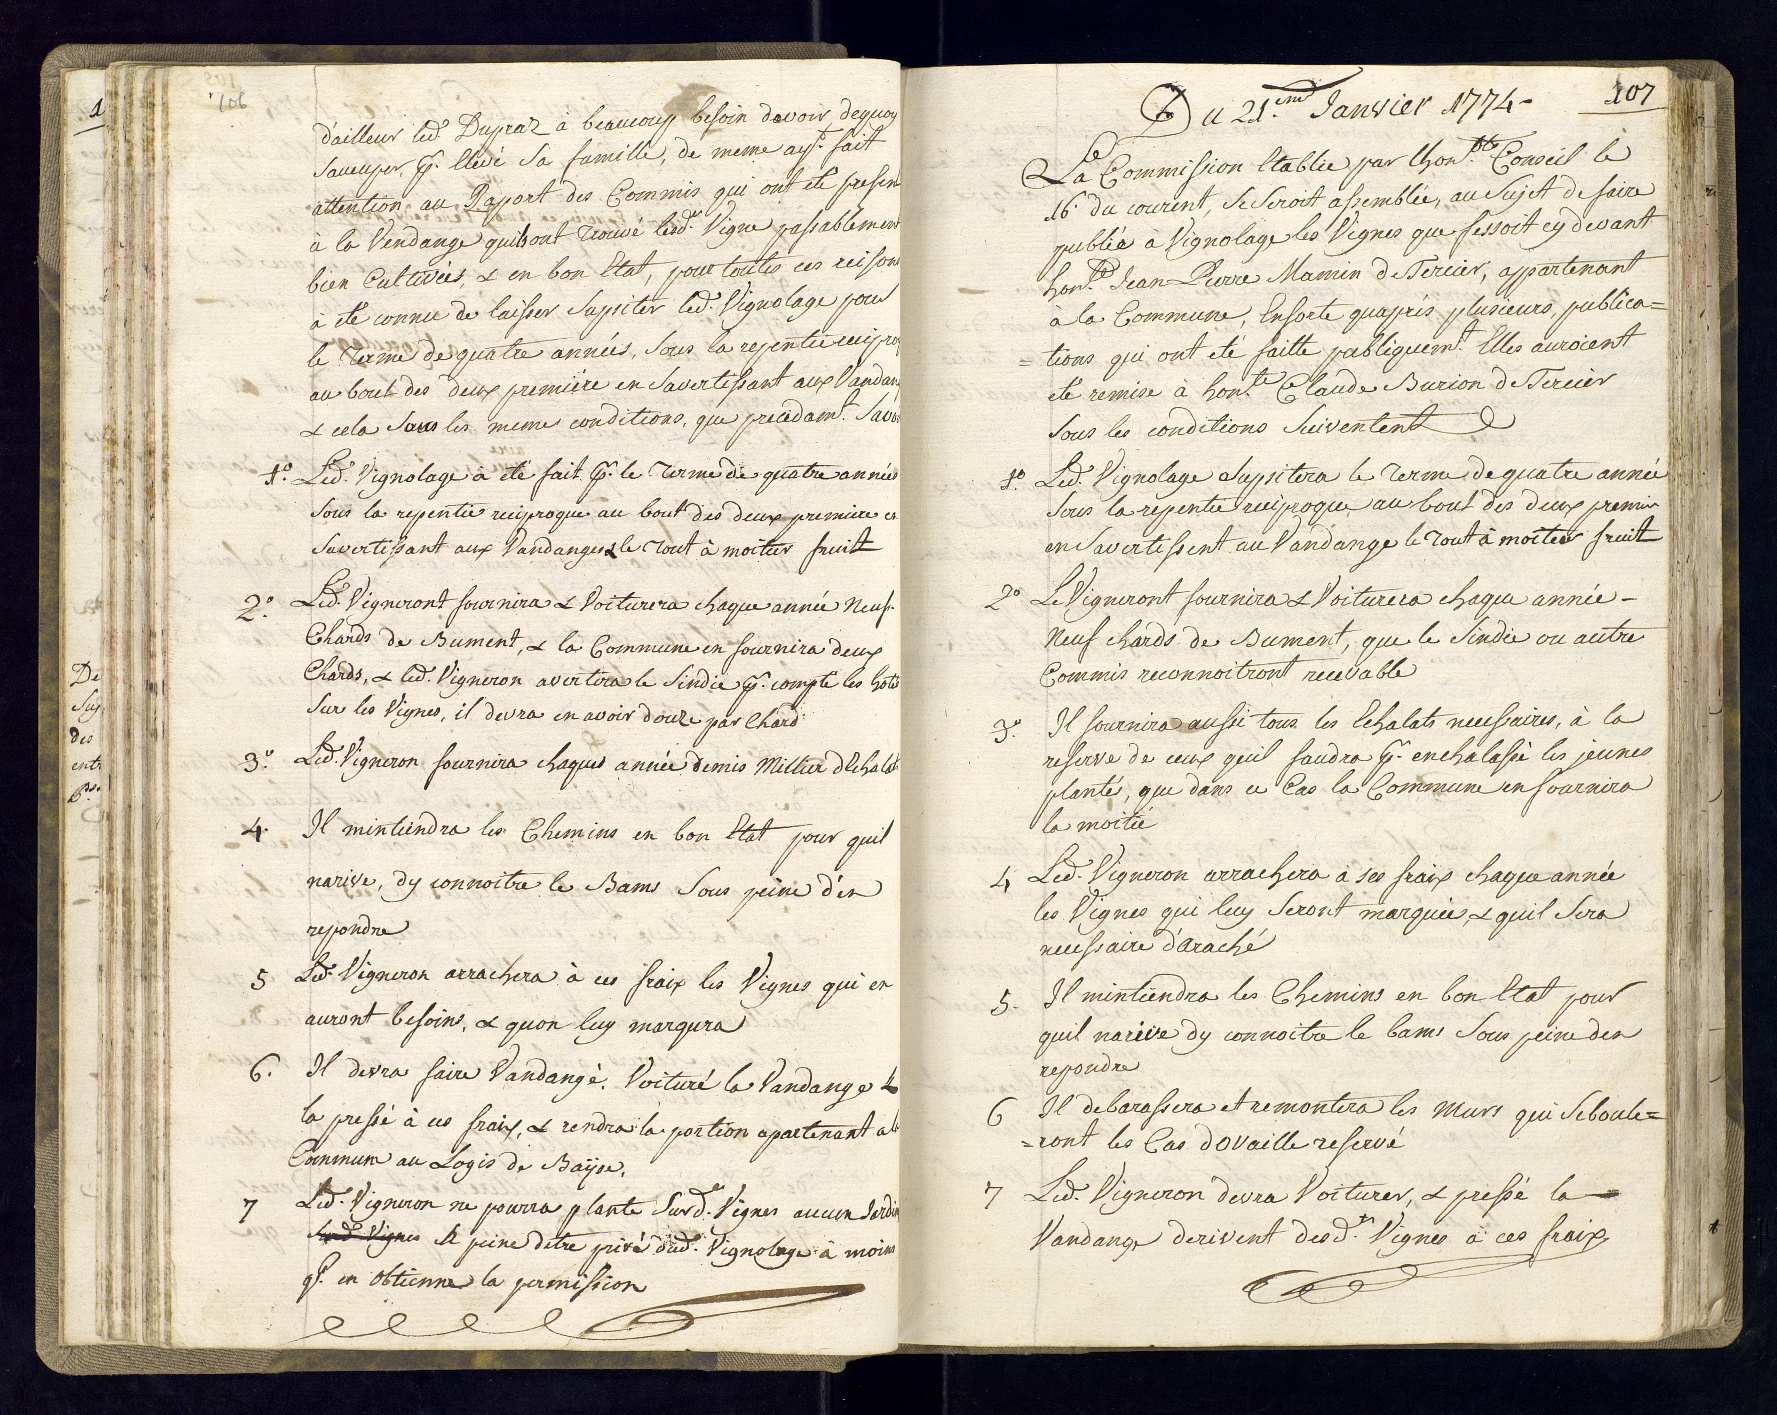 106
d'ailleur led. Dupraz à beaucoup besoin davoir dequoy
pr. Elevé sa famille, de meme ayt. fait
attention au Raport des Commis qui ont eté presen
à la Vendange quils ont trouvé lesd. Vigne passablement
bien Cultivées, & en bon Etat, pour toutes ces reisons
à eté connu de laisser Supsiter led. Vignolage pour
le terme de quatre années, sous la repentie recipro
au bout des deux premiere en Savertissant aux Vandan
& cela Sous les meme conditions, que precedamt. Savoi
1o. Led. Vignolage à eté fait pr. le terme de quatre années
Sous la repentie reciproque au bout des deux premiere en
Savertissant aux Vandanges & le tout à moitier fruit
2o. Led. Vigneront fournira & Voiturera chaque année Neuf
Chards de Bument, & la Commune en fournira deux
Chards, & led. Vigneron avertira le Sindic pr. compté les hotés
Sur les Vignes, il devra en avoir douze par Chard
3o. Led. Vigneron fournira chaques année demis Millier d'Echalat
4. Il mintiendra les Chemins en bon Etat pour quil
narive, dy connoitre le Bams Sous peine d'en
repondre
5 Led. Vigneron arrachera à ces fraix les Vignes qui en
auront besoins, & quon luy marqura
6. Il devra faire Vandangé, Voituré la Vandange &
la pressé à ces fraix, & rendra la portion apartenant a la
Commune au Logis de Baÿse.
7 Led. Vigneron ne pourra plante Surd. Vignes aucun Jardin
Surd. Vignes à peine detre privé dud. Vignolage à moins
ql. en obtienne la permission
107
Du 21.eme Janvier 1774-
La Commission Etablie par lhon.ble Conseil le
16. du courent, Se Seroit assemblée, au Sujet de faire
publié à Vignolage les Vignes que fessoit cy devant
hon.te Jean-Pierre Mamin de Tercier, appartenant
à la Commune, Ensorte quapris plusieurs, publica=
=tions qui ont eté faitte publiquemt. Elles auroient
eté remise à hon.te Claude Burion de Tercier
Sous les conditions Suiventent
1o. Led. Vignolage Supsitera le terme de quatre année
Sous la repentie reciproque au bout des deux premier
en Savertissent au Vandange le tout à moitier fruit
2o Le Vigneront fournira & Voiturera chaque année-
Neuf chards de Bument, que le Sindic ou autre
Commis reconnoitront recevable
3o. Il fournira aussi tous les Echalats necessaires, à la
reserve de ceux quil faudra pr. enchalassé les jeunes
plantés, que dans ce Cas la Commune en fournira
la moitié
4 Led. Vigneron arrachera à ses fraix chaque année
les Vignes qui luy Seront marquée, & quil Sera
necessaire d'araché
5. Il mintiendra les Chemins en bon Etat pour
quil narive dy connoitre le bams Sous peine den
repondre
6 Il debarassera et remontera les Murs qui Seboule=
=ront les Cas dovaille reservé
7 Led. Vigneron devra Voiturer, & pressé la
Vandange derivent desd.tes Vignes à ces fraix